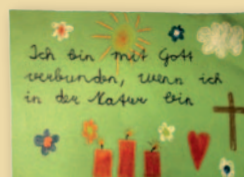 Ich bin mit Gott
verbunden, wenn ich
in der Natur bin